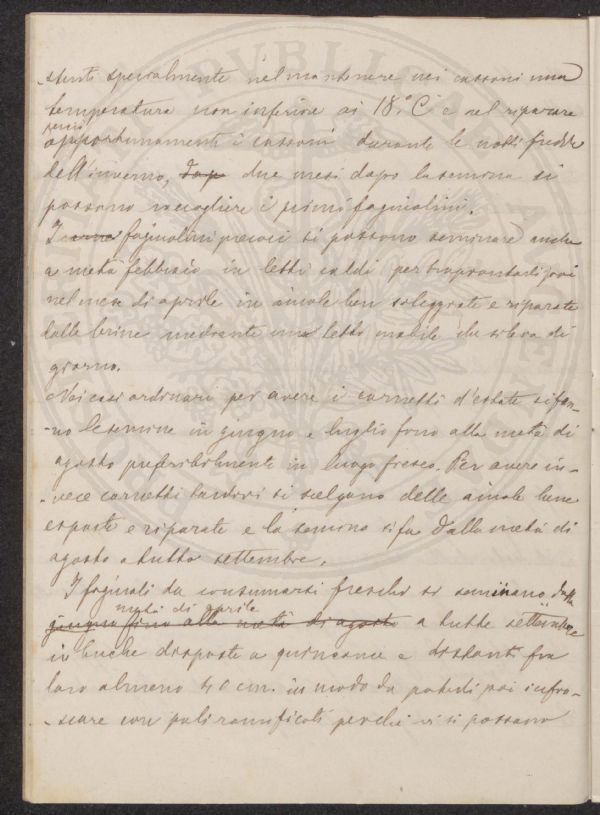 stenti specialmente nel mantenere nei cassoni una
temperatura non inferiore ai 18.° C e nel riparare
opportunamente i cassoni durante le notti fredde
dell'inverno, dopo due mesi dopo la semina si
possono raccogliere i primi fagiuolini.
I fagiuolini precoci si possono seminare anche
a metà febbraio in letti caldi per trapiantarli poi
nel mese di aprile in aiuole ben soleggiate e riparate
dalle brine mediante un letto mobile che si leva di
giorno.
Nei casi ordinari per avere i cornetti d'estate si fan-
-no le semine in giugno e luglio fino alla metà di
agosto preferibilmente in luogo fresco. Per avere in-
-vece cornetti tardivi si scelgano delle aiuole bene
esposte e riparate e la semina si fa dalla metà di
agosto a tutto settembre.
I fagiuoli da consumarsi freschi si seminano dalla
metà di aprile
giugno fino alla metà di agosto a tutto settembre
in buche disposte a quinconce e distanti fra
loro almeno 40 cm. in modo da poterli poi infra-
-scare con pali ramificati perchè vi si possano